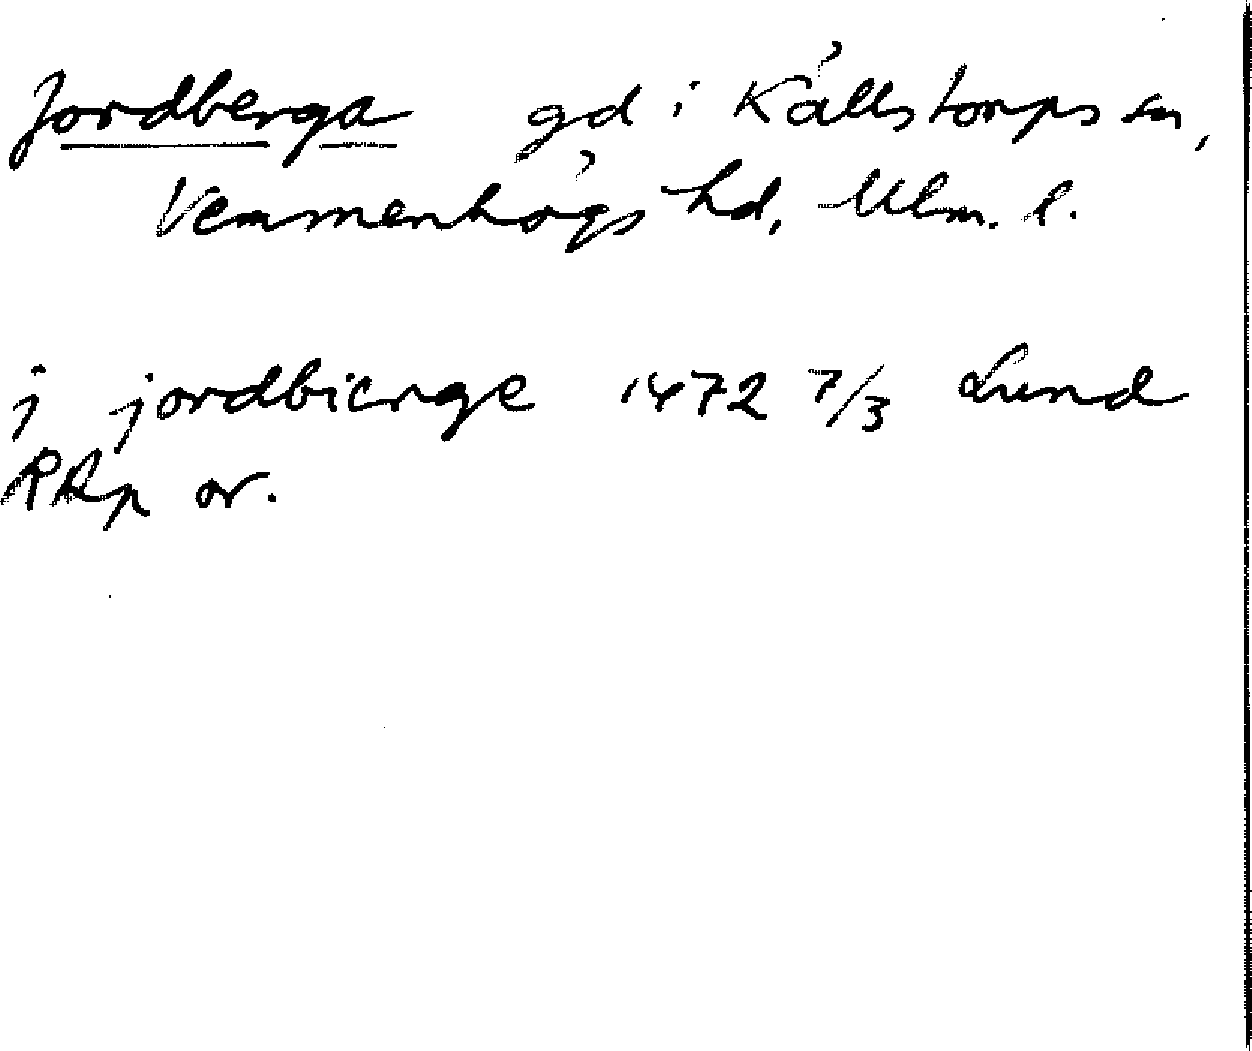 Jordberga gd i Källstorps sn,
Vemmenhögs hd, Mlm. l.
j jordbierge 1472 7/3 Lund
RRp or.